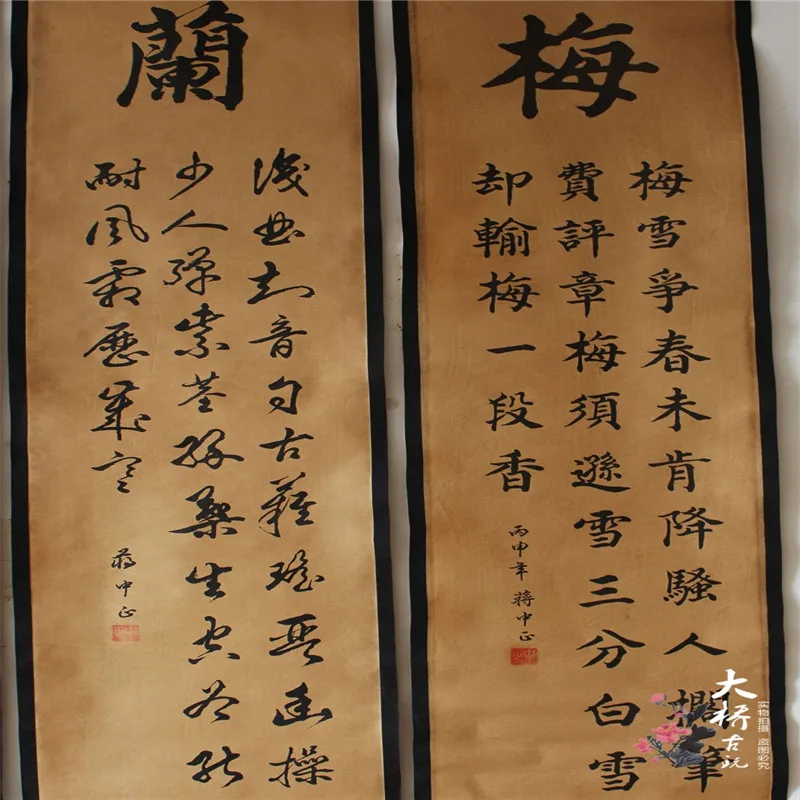 梅
梅雪爭春未肯降騷人擱筆
費評章梅須遜雪三分白雪
却輸梅一段香
丙申年蔣中正
蘭
曲知音自古難瑤琴幽操
少人彈紫莖綠葉生空谷能
耐風霜歷歲寒
蔣中正
大將古玩
实物拍摄
盗图必究